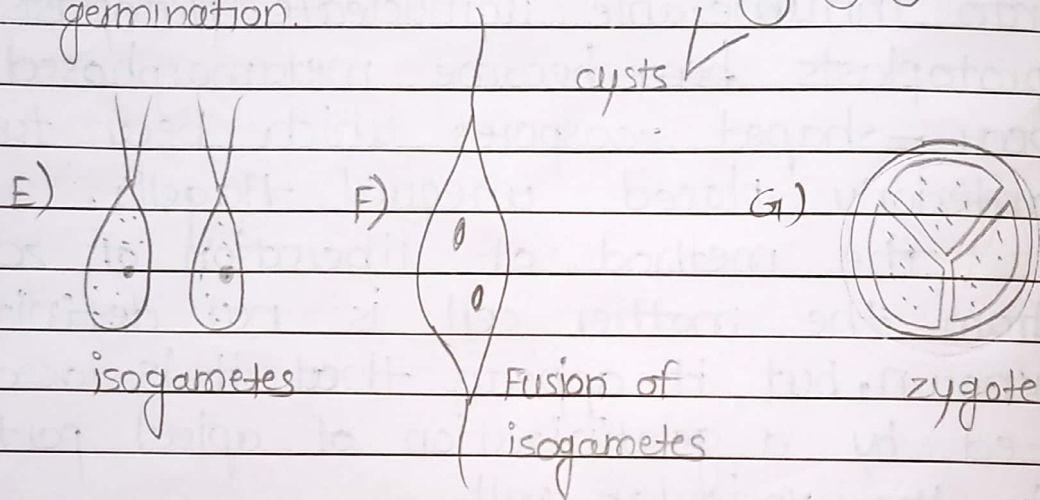 germination.
cysts
E)
F)
G)
isogametes
Fusion of
isogametes
zygote